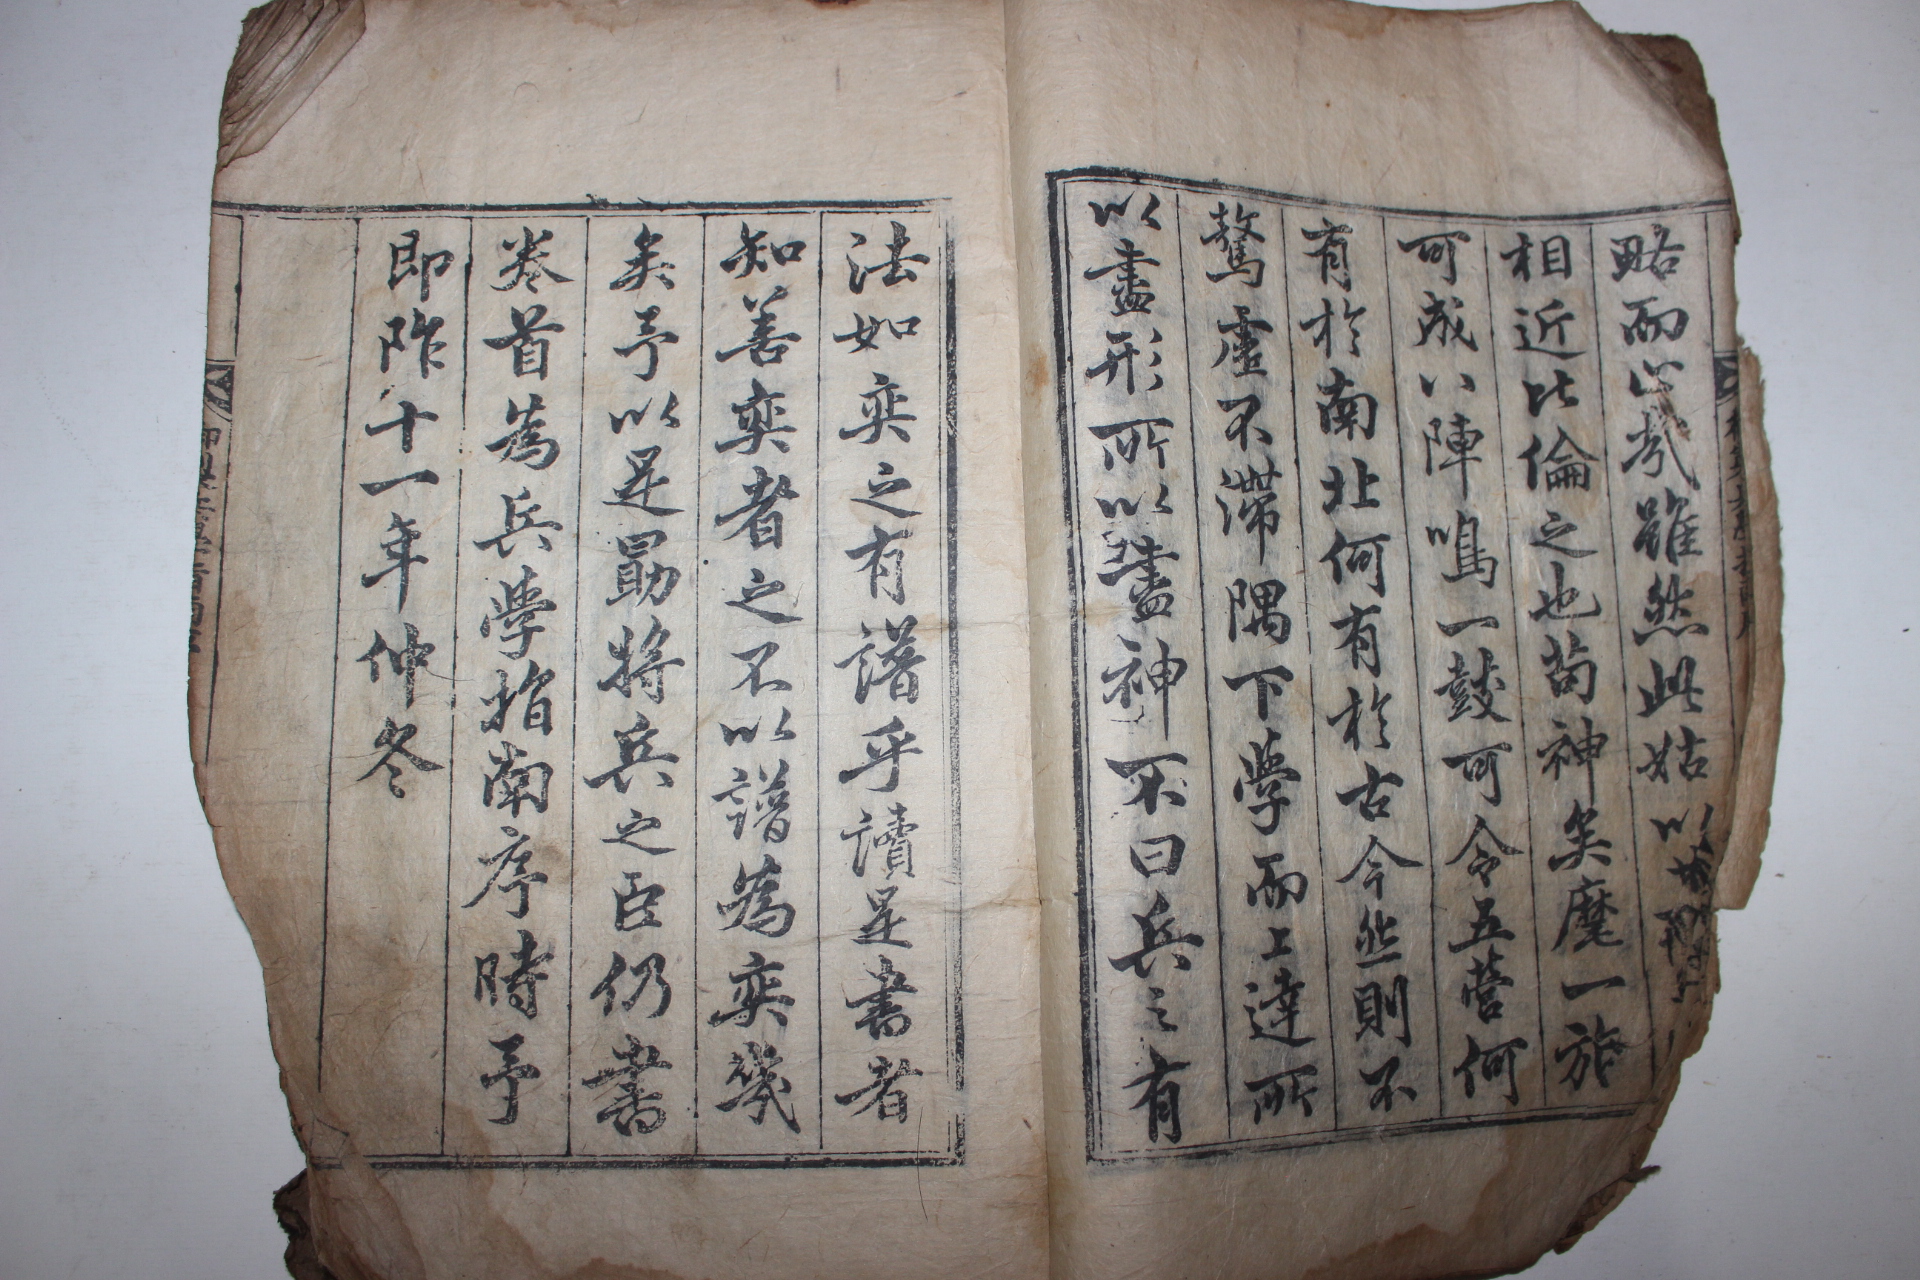 略而止哉雖然此姑以
相近比倫之也苟神矣麾一旅
可成八陣鳴一鼓可令五營何
有於南北何有於古今然則不
騖虛不滯隅下學而上達所
以盡形所以盡神不曰兵之有
法如奕之有譜乎讀是書者
知善奕者之不以譜爲奕幾
矣予以是勖將兵之臣仍書
卷首爲兵學指南序時予
即阼十一年仲冬